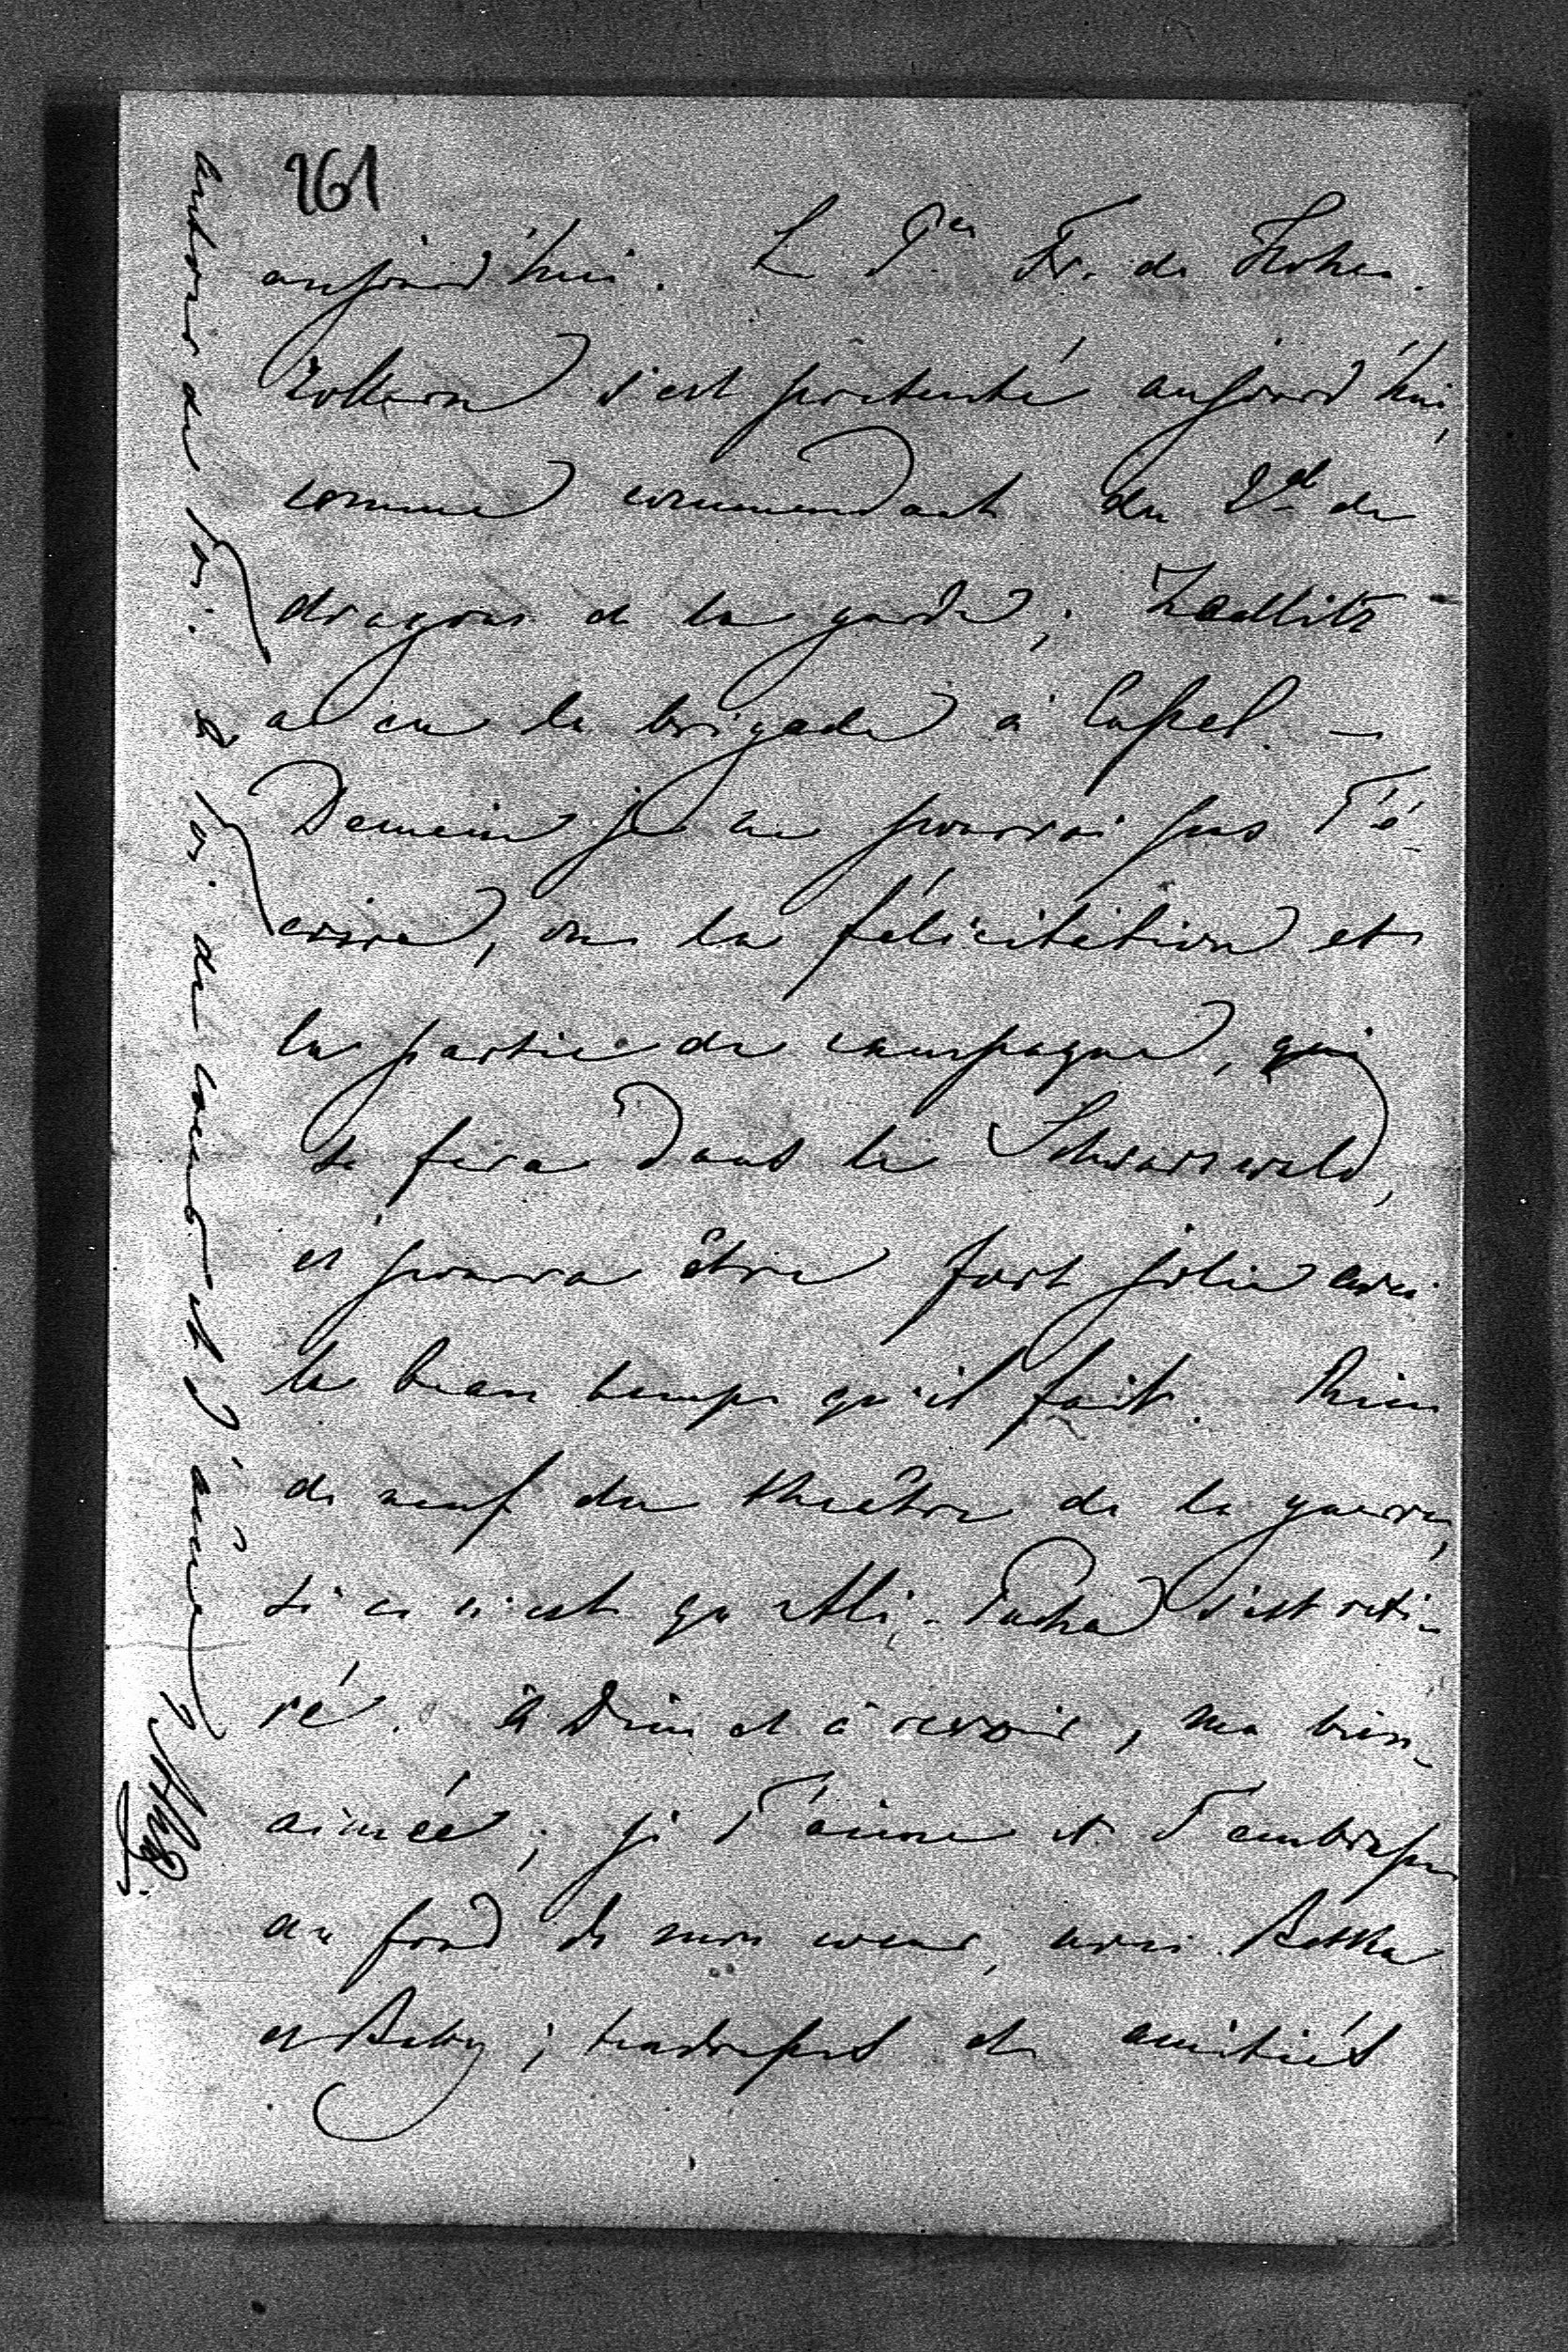 261
aujourd'hui. Le Pce Fr. de Hohen.
zollern s'est présenté aujourd'hui,
comme commendant du 2d de
dragons de la garde; Zedlitz
a eu la brigade à Cassel. —
Demain je ne pourrai pas T'é-
crire, vu la félicitation et
la partie de campagne, qui
se fera dans le Schwarzwald,
et pourra être fort jolie avec
le beau temps qu'il fait. Rien
de neuf du théâtre de la guerre,
si ce n'est qu'Ali-Pacha s'est reti-
ré. à Dieu et à revoir, ma bien-
aimée; je T'aime et T'embrasse
au fond de mon cœur, avec
et Baby; tendresses et amitiés